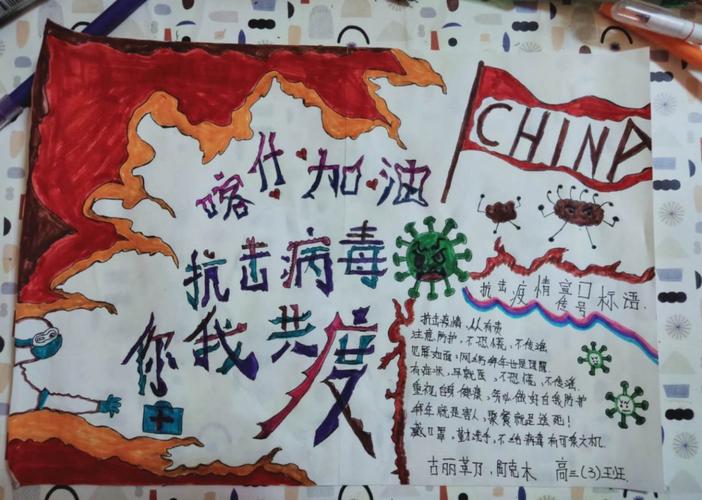 喀什加油
抗击病毒
你我共度
CHINA
抗击疫情宣传口号标语.
抗击疫情,人人有责
注意防护,不恐慌,不传谣
见屏如面:网络拜年也是
有症状,早就医,不恐慌,不传谣.
重视自身健康,务必做好自我防护
拜年就是害人,聚餐就是送死!
戴口罩,勤洗手,不给病毒有可乘之机.
古丽 阿克木 高三(3)